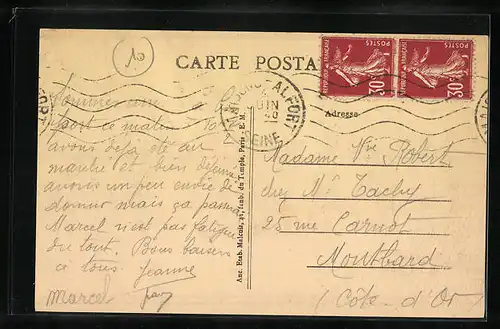 10
CARTE POSTA
REPUBLIQUE FRANÇAISE
POSTES
30c
REPUBLIQUE FRANÇAISE
POSTES
30c
MAISONS-ALFORT
JUIN
SEINE
Adresse
Sommes
port ce matin
avons déjà été au
marché et bien déjeuné
avons un peu envie de
dormir mais ça passera
Marcel n'est pas fatigué
du tout. Bons baisers
à tous. Jeanne
Marcel
Anc. Etab. Malcuit, faub. du Temple, Paris - E. M.
Madame Vve Robert
chez Mr Tachy
25 rue Carnot
Montbard
(Côte-d'Or)